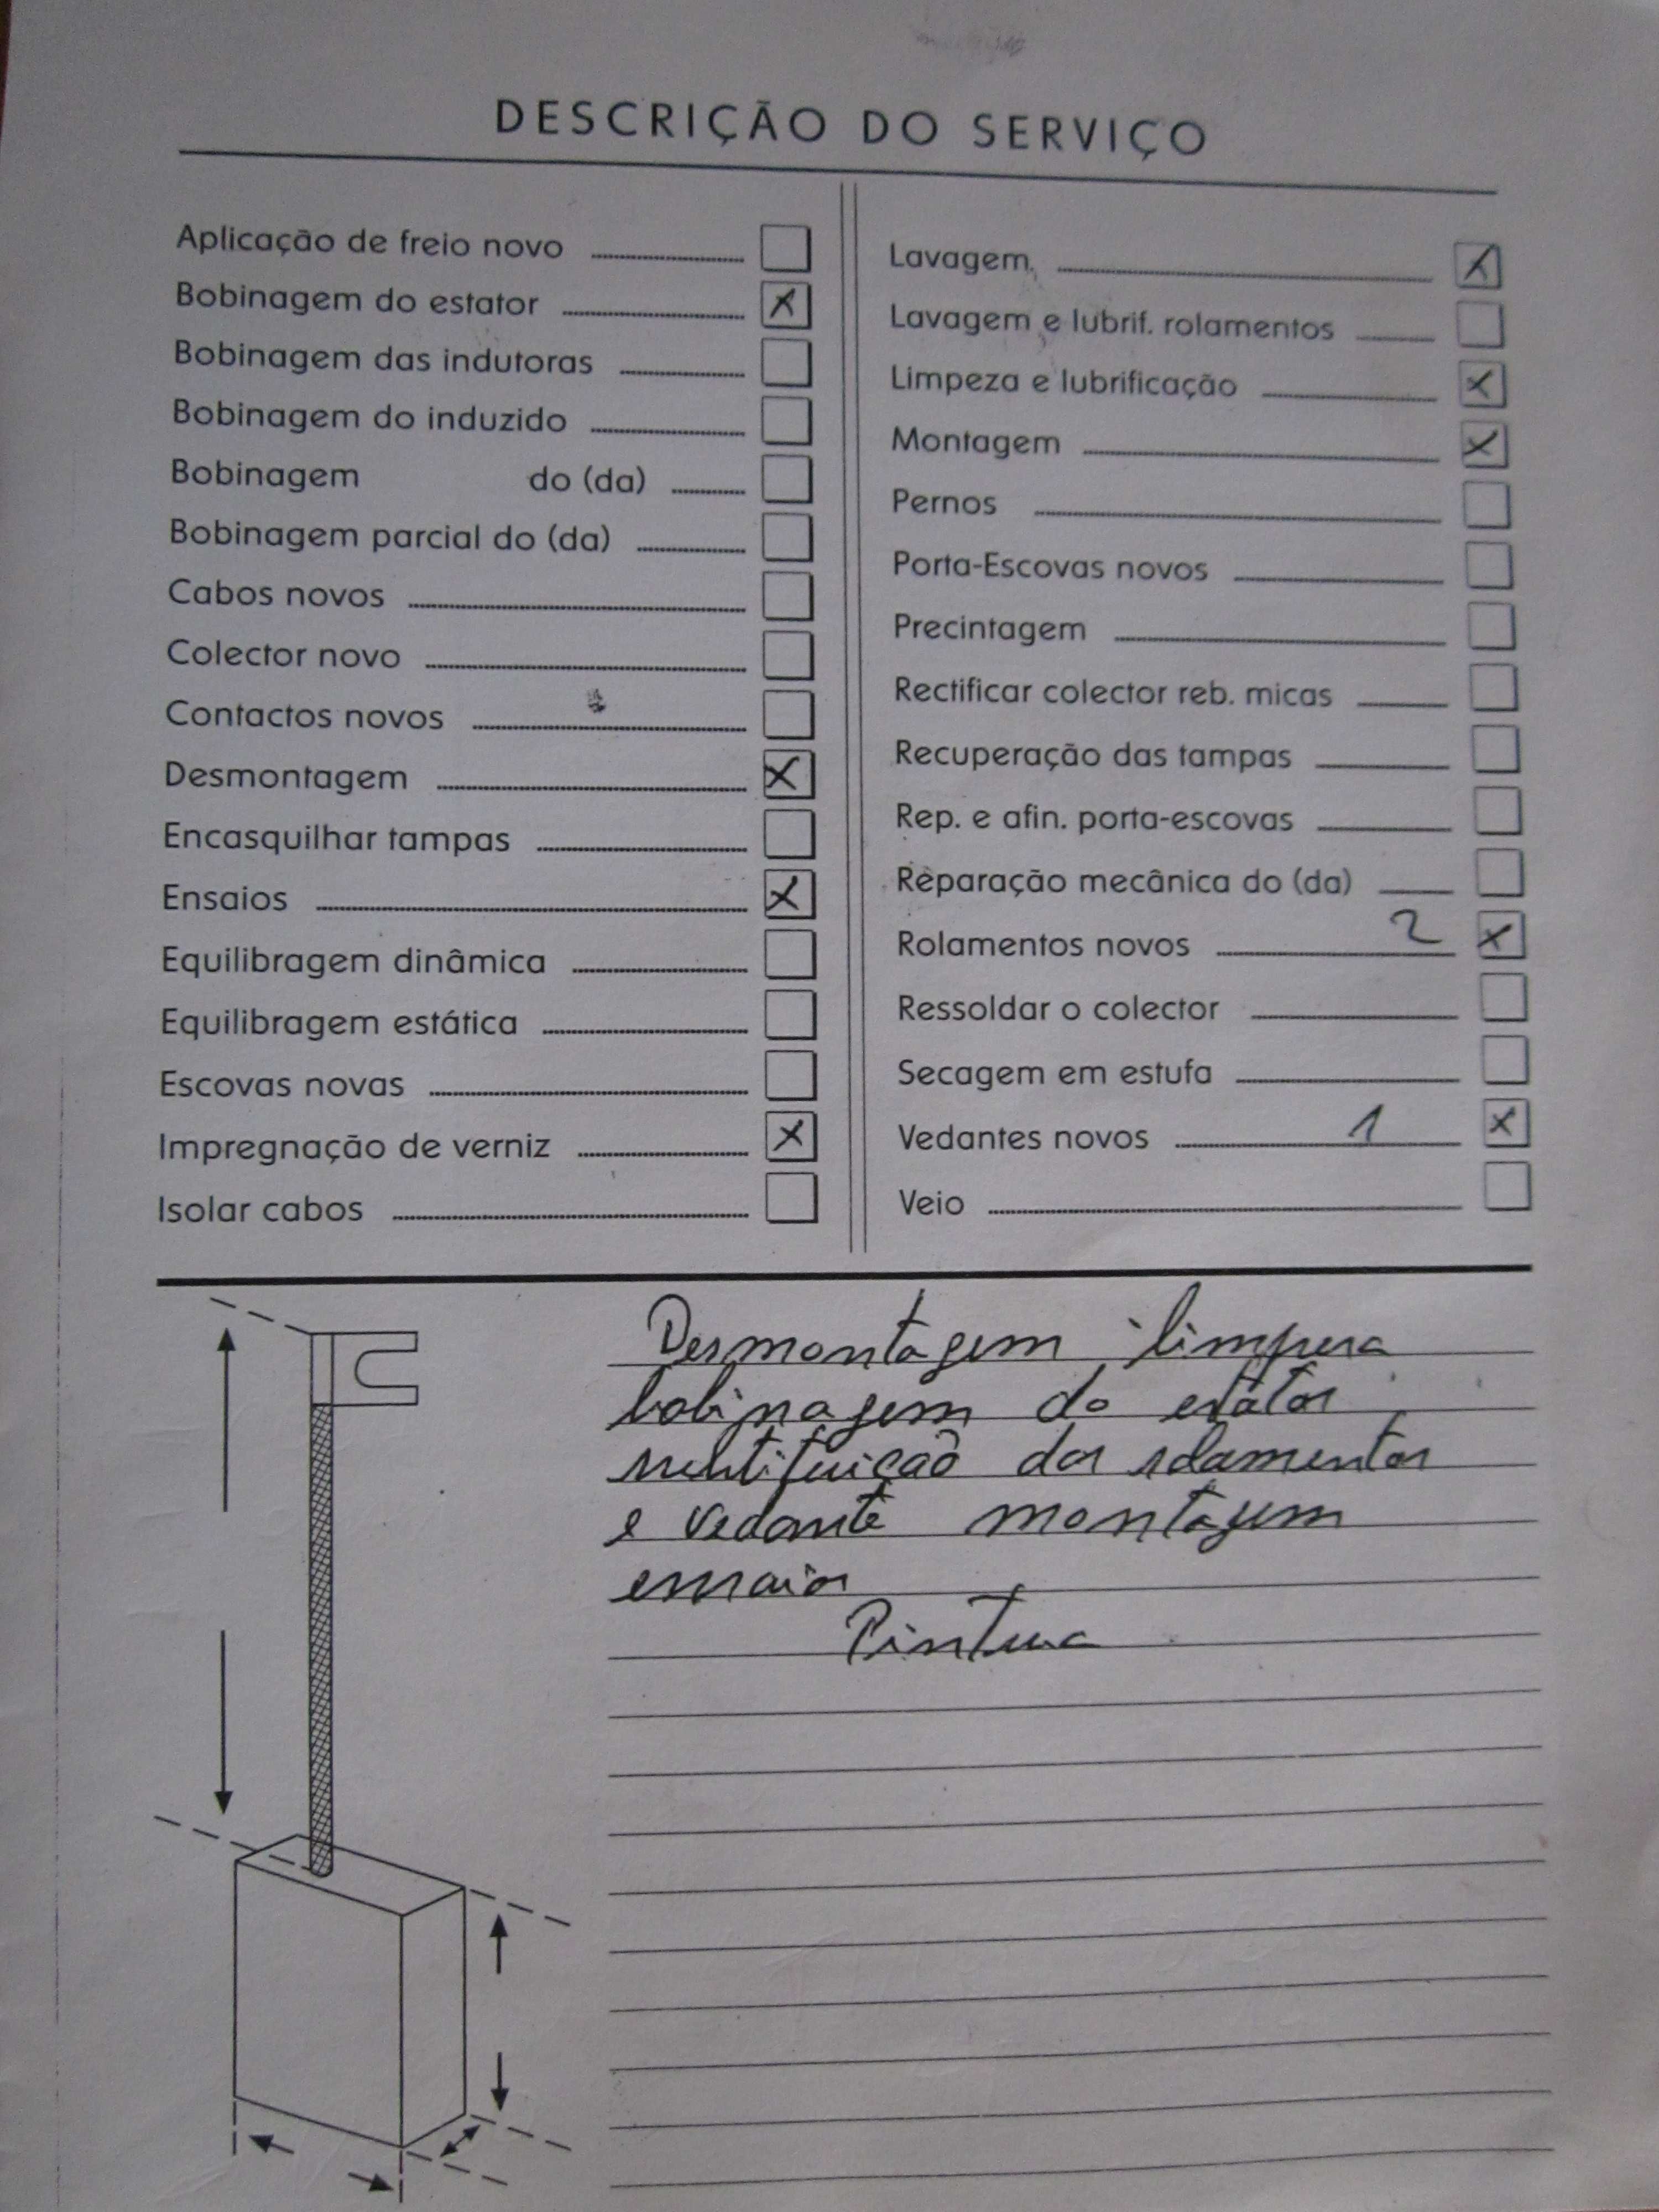 DESCRIÇÃO DO SERVIÇO
Aplicação de freio novo
Bobinagem do estator X
Bobinagem das indutoras
Bobinagem do induzido
Bobinagem do (da)
Bobinagem parcial do (da)
Cabos novos
Colector novo
Contactos novos
Desmontagem X
Encasquilhar tampas
Ensaios X
Equilibragem dinâmica
Equilibragem estática
Escovas novas
Impregnação de verniz X
Isolar cabos
Lavagem X
Lavagem e lubrif. rolamentos
Limpeza e lubrificação X
Montagem X
Pernos
Porta-Escovas novos
Precintagem
Rectificar colector reb. micas
Recuperação das tampas
Rep. e afin. porta-escovas
Reparação mecânica do (da)
Rolamentos novos 2 X
Ressoldar o colector
Secagem em estufa
Vedantes novos 1 X
Veio
Desmontagem limpeza
bobinagem do estator
substituição dos rolamentos
e vedante montagem
ensaios
Pintura